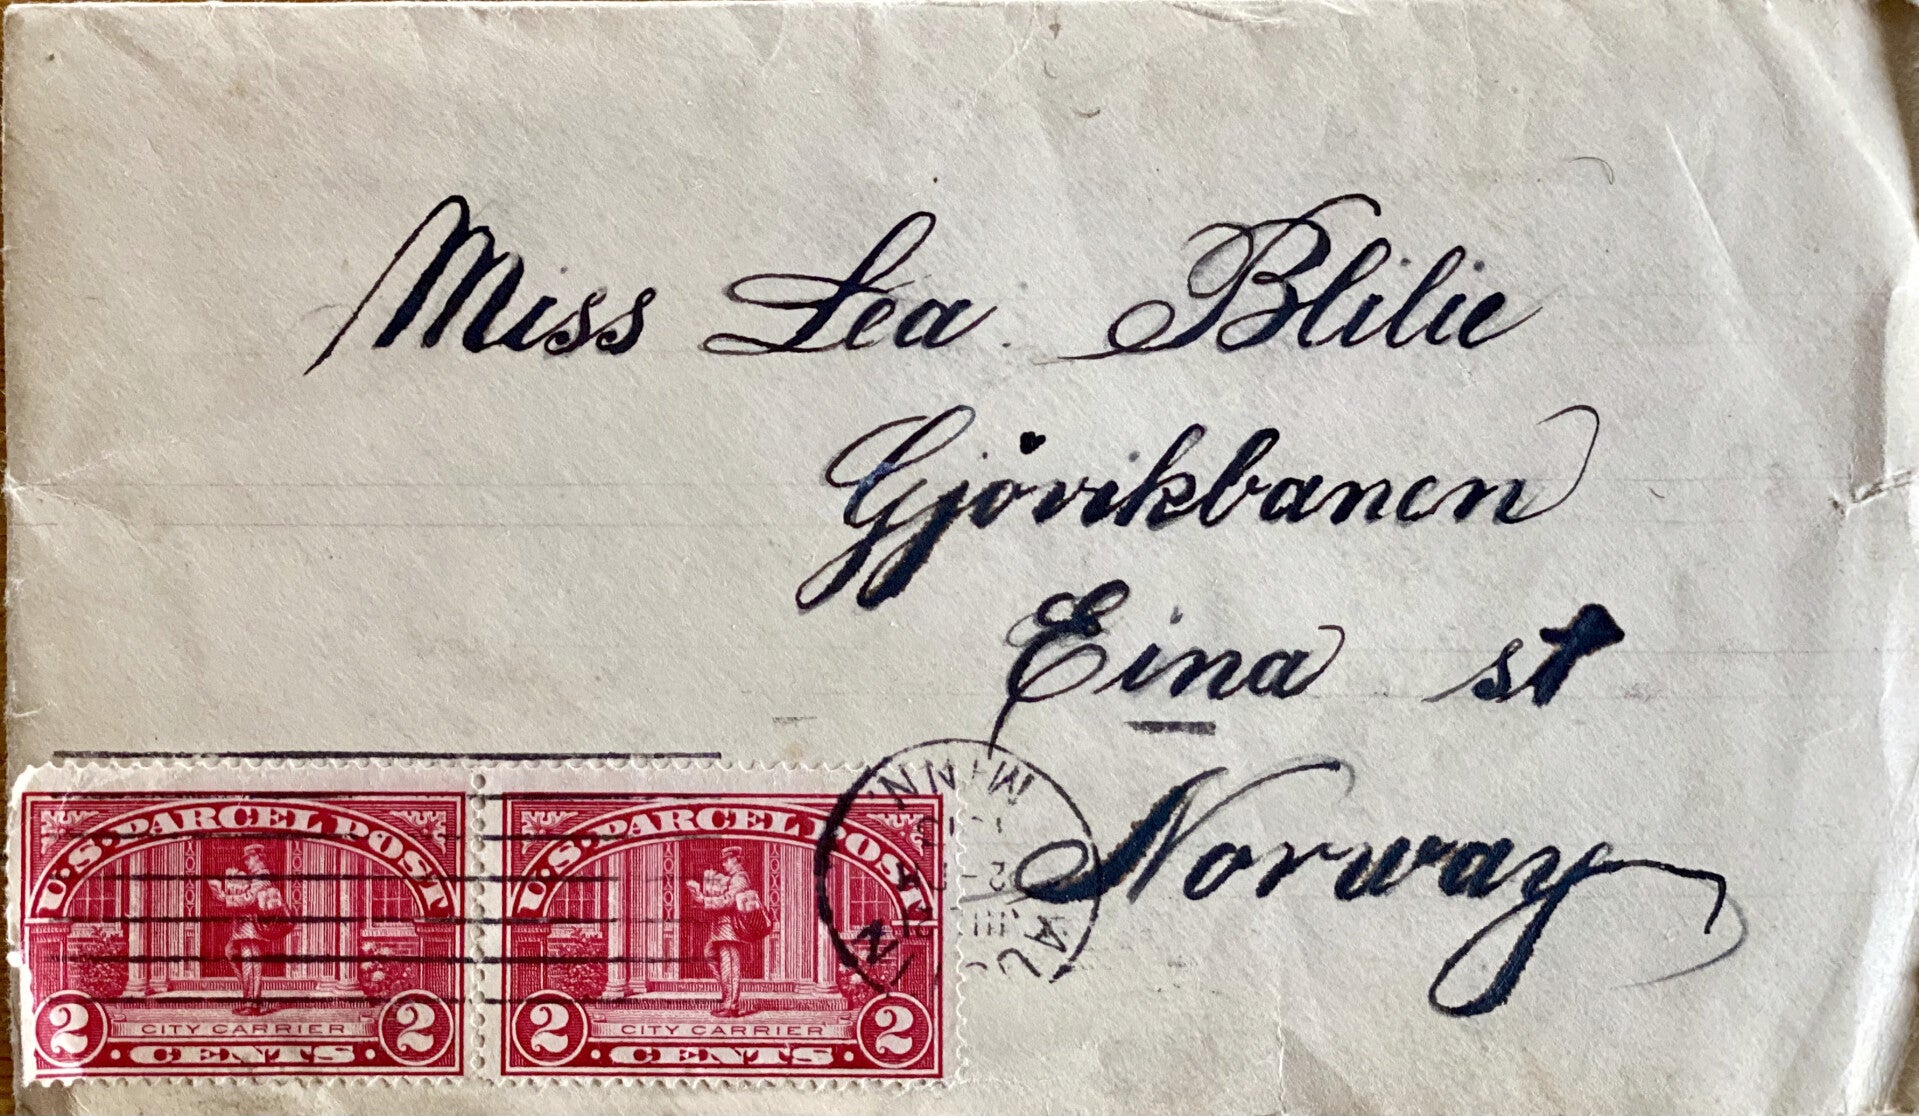 Miss Lea Blilie
Gjövikbanen
Eina st
Norway
U.S. PARCEL POST
2 CITY CARRIER 2
CENTS
U.S. PARCEL POST
2 CITY CARRIER 2
CENTS
MINN.